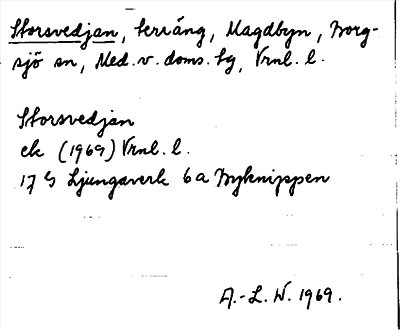 Storsvedjan, terräng, Magdbyn, Borg-
sjö sn, Med. v. doms. tg, Vrnl. l.
Storsvedjan
ek (1969) Vrnl. l.
17 G Ljungaverk 6a Byknippen
A.-L. W. 1969.